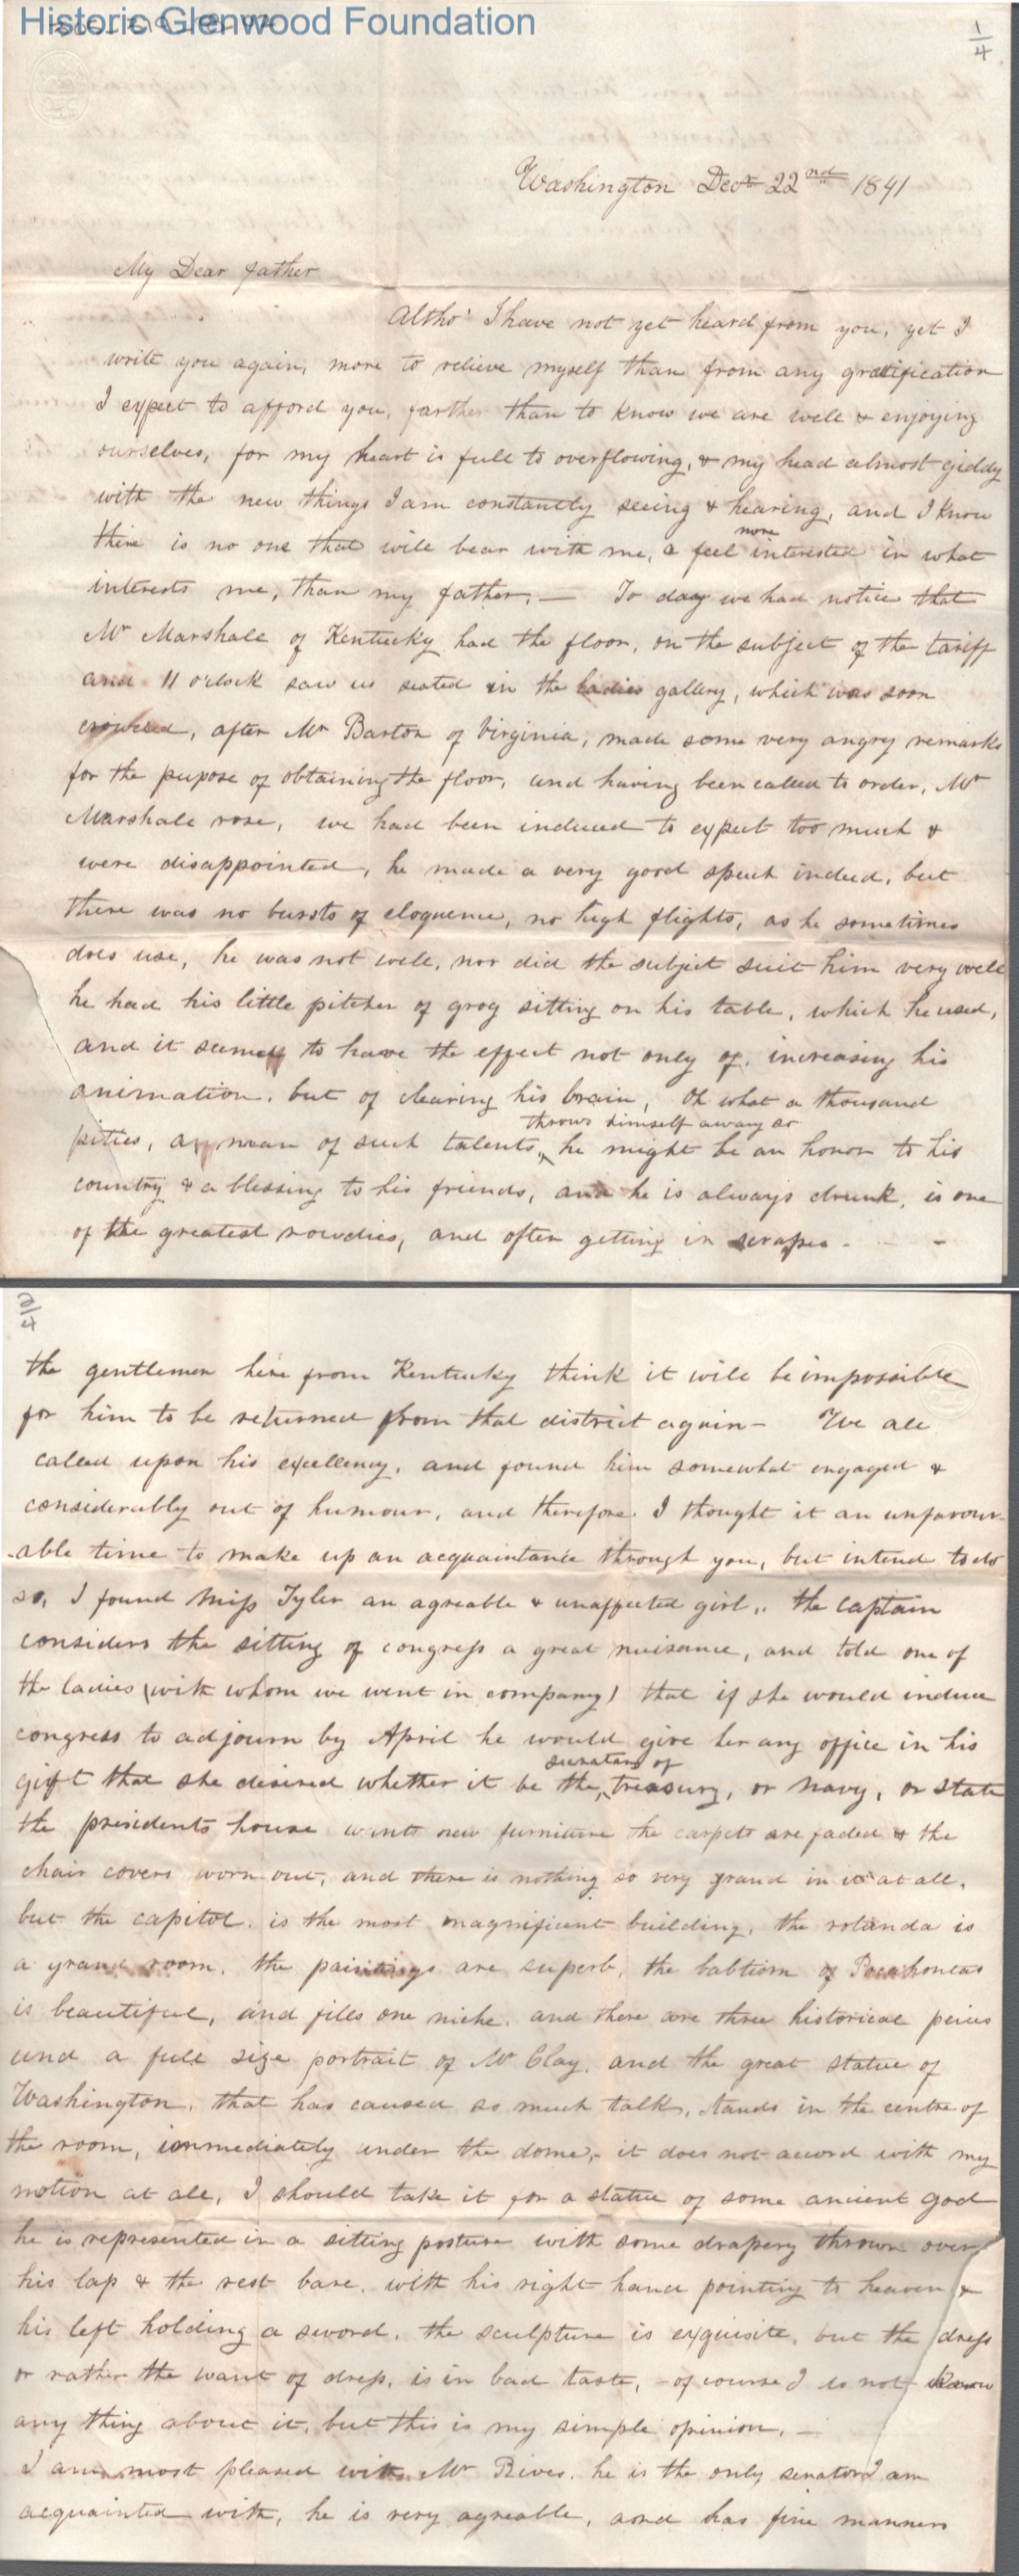 Historic Glenwood Foundation
1/4
Washington Decr 22nd 1841
My Dear father
Altho' I have not yet heard from you, yet I
write you again, more to relieve myself than from any gratification
I expect to afford you, farther than to know we are well & enjoying
ourselves, for my heart is full to overflowing, & my head almost giddy
with the new things I am constantly seeing & hearing, and I know
there is no one that will bear with me, & feel more interested in what
interests me, than my father. — To day we had notice that
Mr Marshall of Kentucky had the floor, on the subject of the tariff
and 11 o'clock saw us seated in the ladies gallery, which was soon
crowded, after Mr Barton of Virginia, made some very angry remarks
for the pupose of obtaining the floor, and having been called to order, Mr
Marshall rose, we had been induced to expect too much &
were disappointed, he made a very good speech indeed, but
there was no bursts of eloquence, no high flights, as he sometimes
does use, he was not well, nor did the subject suit him very well
he had his little pitcher of grog sitting on his table, which he used,
and it seemed to have the effect not only of increasing his
animation, but of clearing his brain, Oh what a thousand
pities, a man of such talents, throws himself away so he might be an honor to his
country & a blessing to his friends, and he is always drunk, is one
of the greatest rowdies, and often getting in scrapes - - -
2/4
the gentlemen here from Kentucky think it will be impossible
for him to be returned from that district again - We all
called upon his excellency, and found him somewhat engaged &
considerably out of humour, and therefore I thought it an unfavour-
-able time to make up an acquaintance through you, but intend to do
so, I found Miss Tyler an agreable & unaffected girl,. the captain
considers the sitting of congress a great nuisance, and told one of
the ladies (with whom we went in company) that if she would induce
congress to adjourn by April he would give her any office in his
gift that she desired whether it be the secretary of treasury, or navy, or state
the presidents house wants new furniture the carpets are faded & the
chair covers worn out, and there is nothing so very grand in it at all,
but the capitol, is the most magnificent building, the rotunda is
a grand room, the paintings are superb, the babtism of Pocahontas
is beautiful, and fills one niche, and there are three historical peices
and a full size portrait of Mr Clay, and the great statue of
Washington, that has caused so much talk, stands in the centre of
the room, immediately under the dome, - it does not accord with my
notion at all, I should take it for a statue of some ancient god
he is represented in a sitting posture with some drapery thrown over
his lap & the rest bare, with his right hand pointing to heaven &
his left holding a sword, the sculpture is exquisite, but the dress
or rather the want of dress, is in bad taste, - of course I do not know
any thing about it, but this is my simple opinion, —
I am most pleased with Mr Rives, he is the only senator I am
acquainted with, he is very agreable, and has fine manners